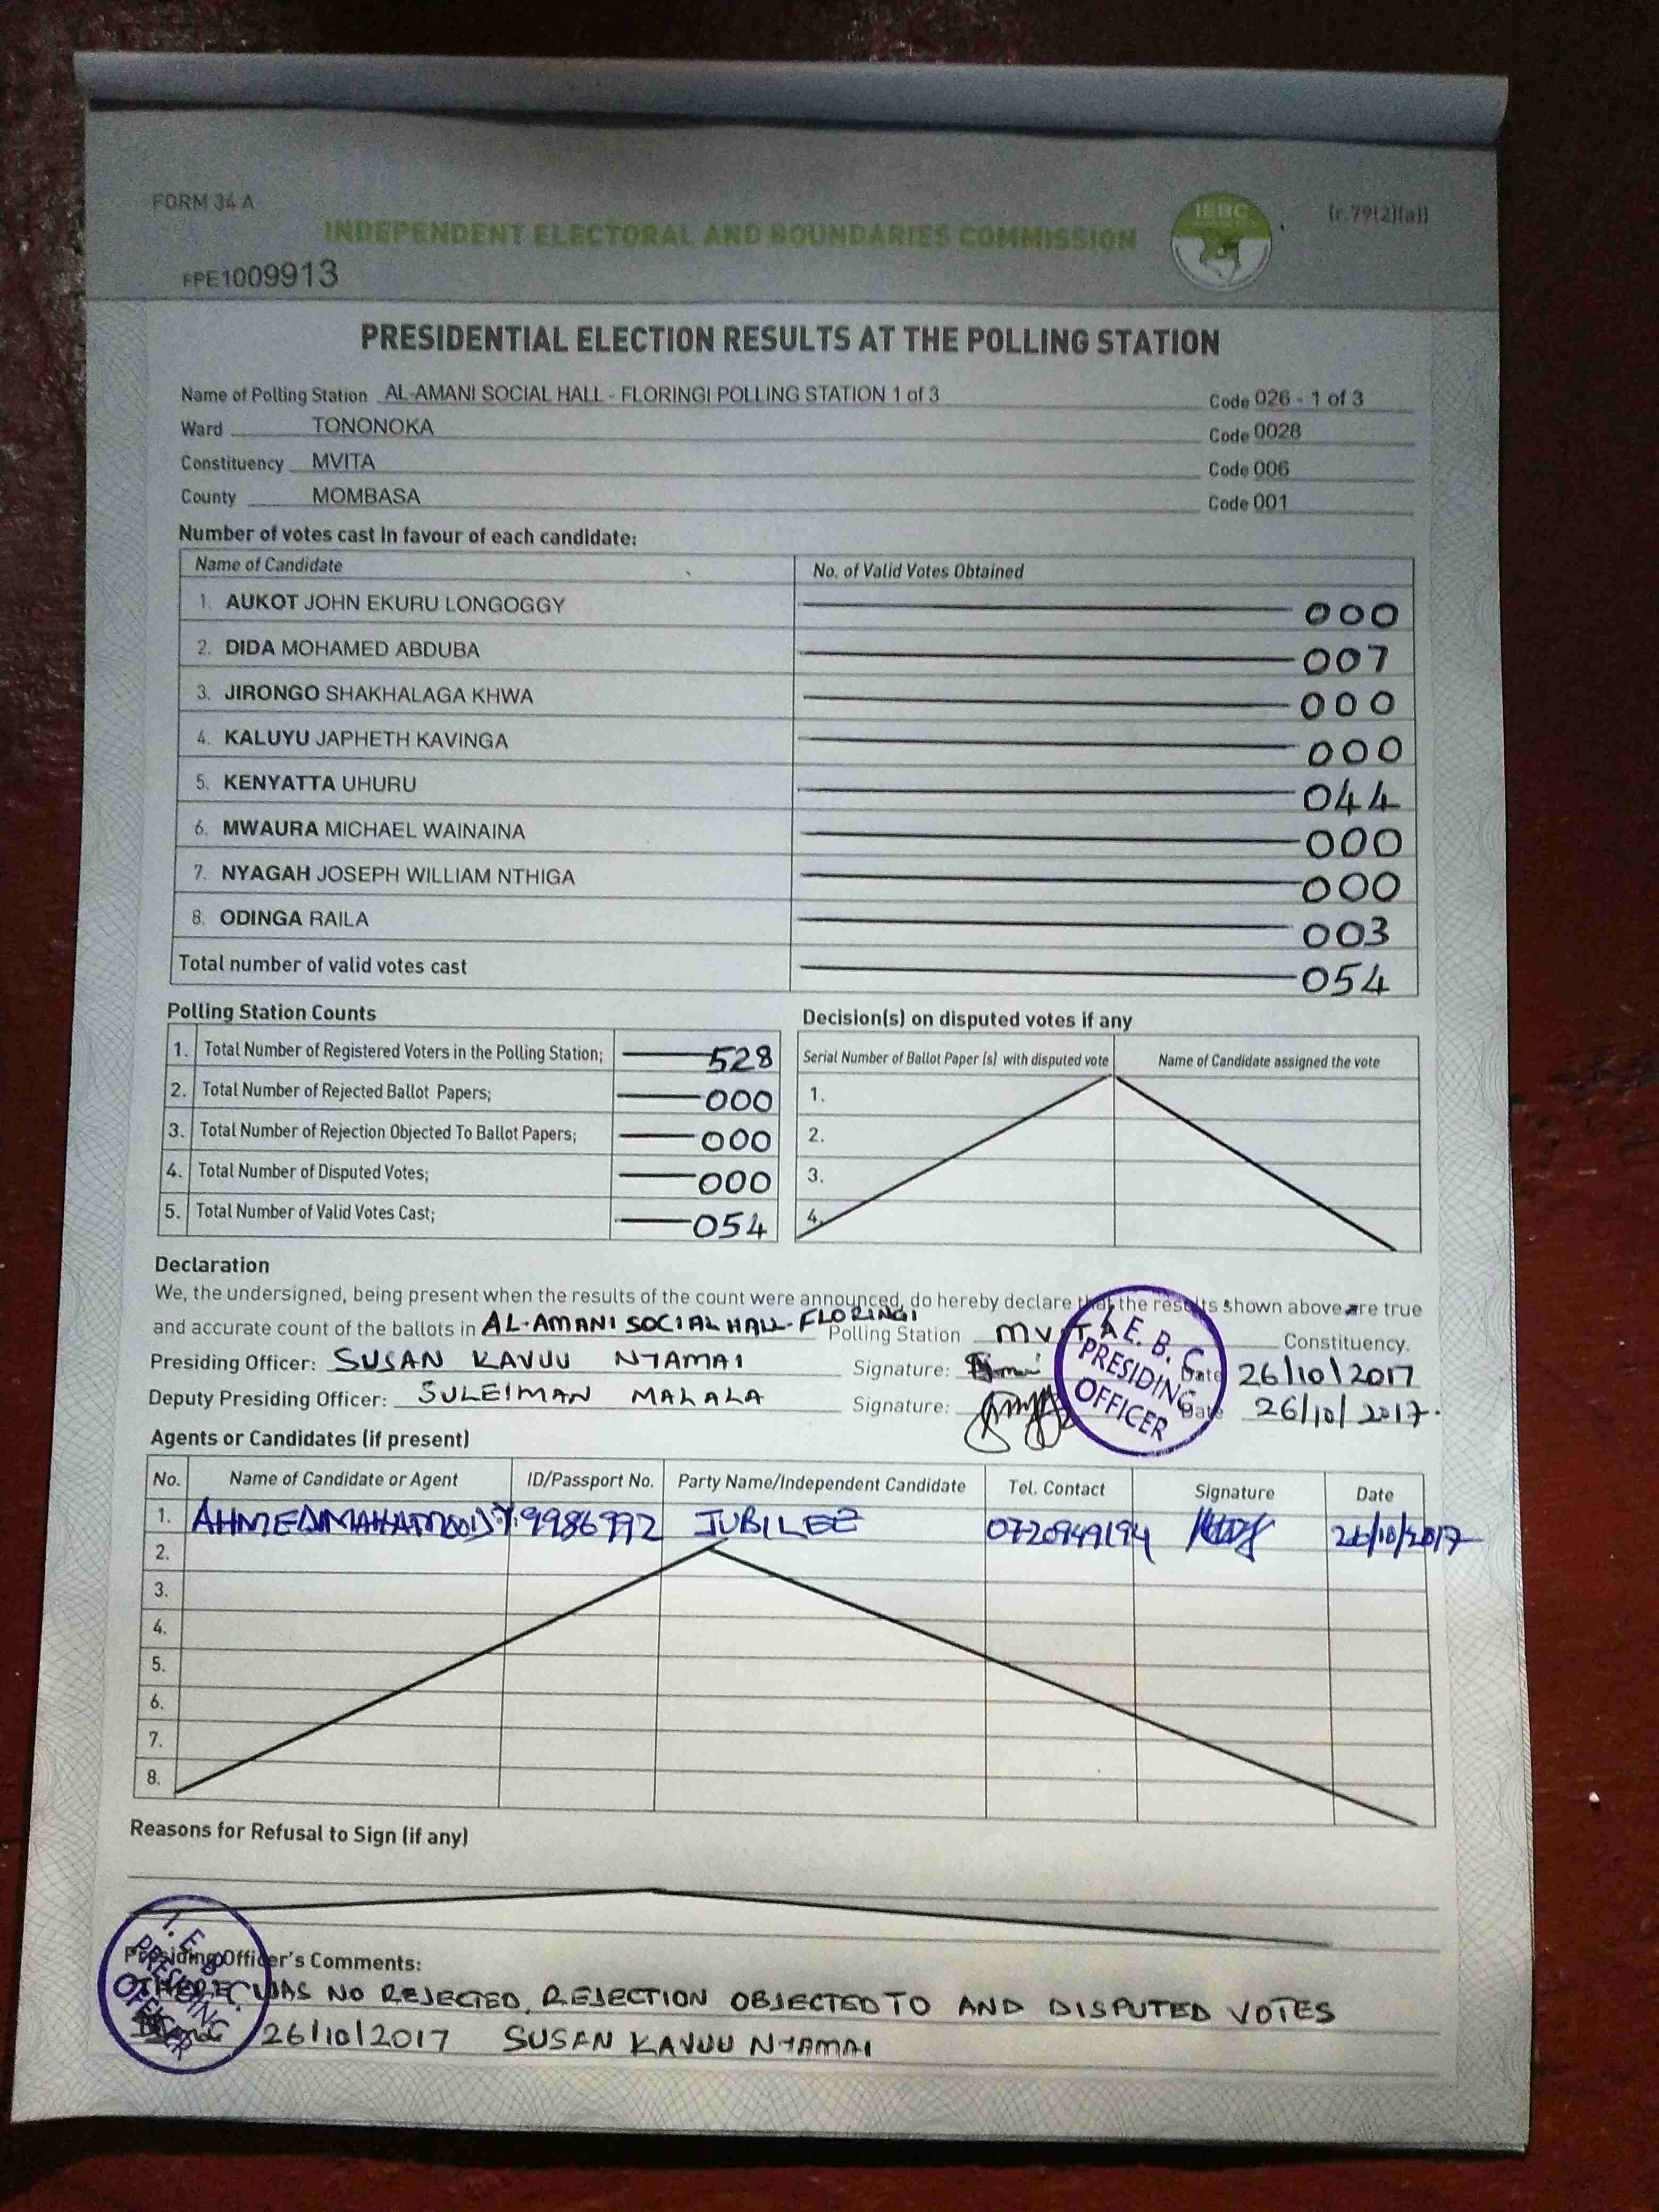 FORM 34 A
IEBC
(r.79(2)(a))
INDEPENDENT ELECTORAL AND BOUNDARIES COMMISSION
FPE1009913
PRESIDENTIAL ELECTION RESULTS AT THE POLLING STATION
Name of Polling Station AL-AMANI SOCIAL HALL - FLORINGI POLLING STATION 1 of 3 Code 026 - 1 of 3
Ward TONONOKA Code 0028
Constituency MVITA Code 006
County MOMBASA Code 001
Number of votes cast in favour of each candidate:
Name of Candidate No. of Valid Votes Obtained
1. AUKOT JOHN EKURU LONGOGGY 000
2. DIDA MOHAMED ABDUBA 007
3. JIRONGO SHAKHALAGA KHWA 000
4. KALUYU JAPHETH KAVINGA 000
5. KENYATTA UHURU 044
6. MWAURA MICHAEL WAINAINA 000
7. NYAGAH JOSEPH WILLIAM NTHIGA 000
8. ODINGA RAILA 003
Total number of valid votes cast 054
Polling Station Counts
1. Total Number of Registered Voters in the Polling Station; 528
2. Total Number of Rejected Ballot Papers; 000
3. Total Number of Rejection Objected To Ballot Papers; 000
4. Total Number of Disputed Votes; 000
5. Total Number of Valid Votes Cast; 054
Decision(s) on disputed votes if any
Serial Number of Ballot Paper (s) with disputed vote Name of Candidate assigned the vote
1.
2.
3.
4.
Declaration
We, the undersigned, being present when the results of the count were announced, do hereby declare that the results shown above are true
and accurate count of the ballots in AL-AMANI SOCIAL HALL-FLORINGI Polling Station MVITA Constituency.
Presiding Officer: SUSAN KAVUU NTAMAI Signature: Date 26/10/2017
Deputy Presiding Officer: SULEIMAN MALALA Signature: Date 26/10/2017.
I.E.B.C
PRESIDING
OFFICER
Agents or Candidates (if present)
No. Name of Candidate or Agent ID/Passport No. Party Name/Independent Candidate Tel. Contact Signature Date
1. 9986992 JUBILEE 0720949194 26/10/2017
2.
3.
4.
5.
6.
7.
8.
Reasons for Refusal to Sign (if any)
Presiding Officer's Comments:
THERE WAS NO REJECTED, REJECTION OBJECTED TO AND DISPUTED VOTES
26/10/2017 SUSAN KAVUU NTAMAI
I.E.B.C.
PRESIDING
OFFICER